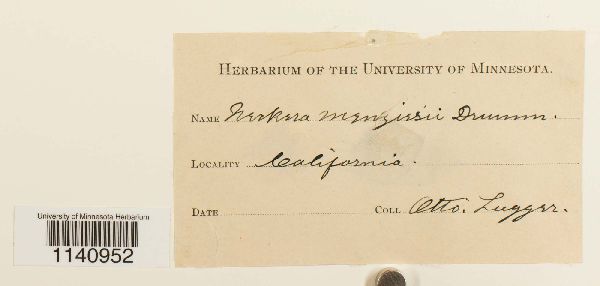 HERBARIUM OF THE UNIVERSITY OF MINNESOTA.
NAME Neckera menziesii Drumm.
LOCALITY California.
DATE COLL Otto. Lugger.
University of Minnesota Herbarium
1140952